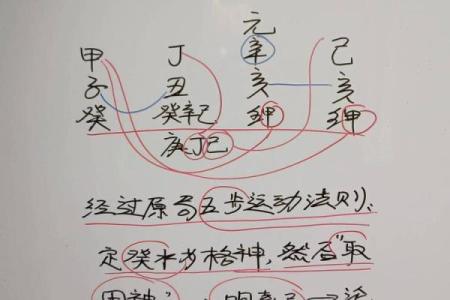 元
甲 丁 辛 己
子 丑 亥 亥
癸 癸辛己 壬甲 壬甲
庚丁己
经过原局五步运动法则、
定癸水为格神,然后"取
用神"